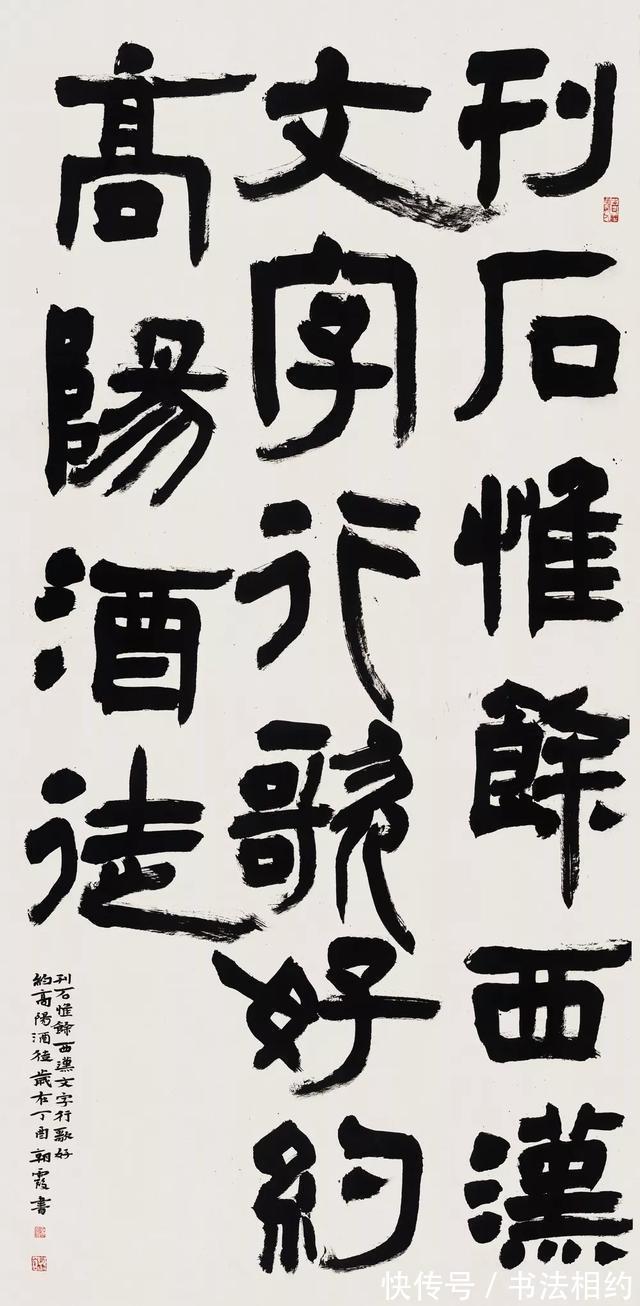 刊石惟餘西漢
文字行歌好約
高陽酒徒
刊石惟餘西漢文字行歌好
約高陽酒徒歲在丁酉朝霞書
快传号/书法相约